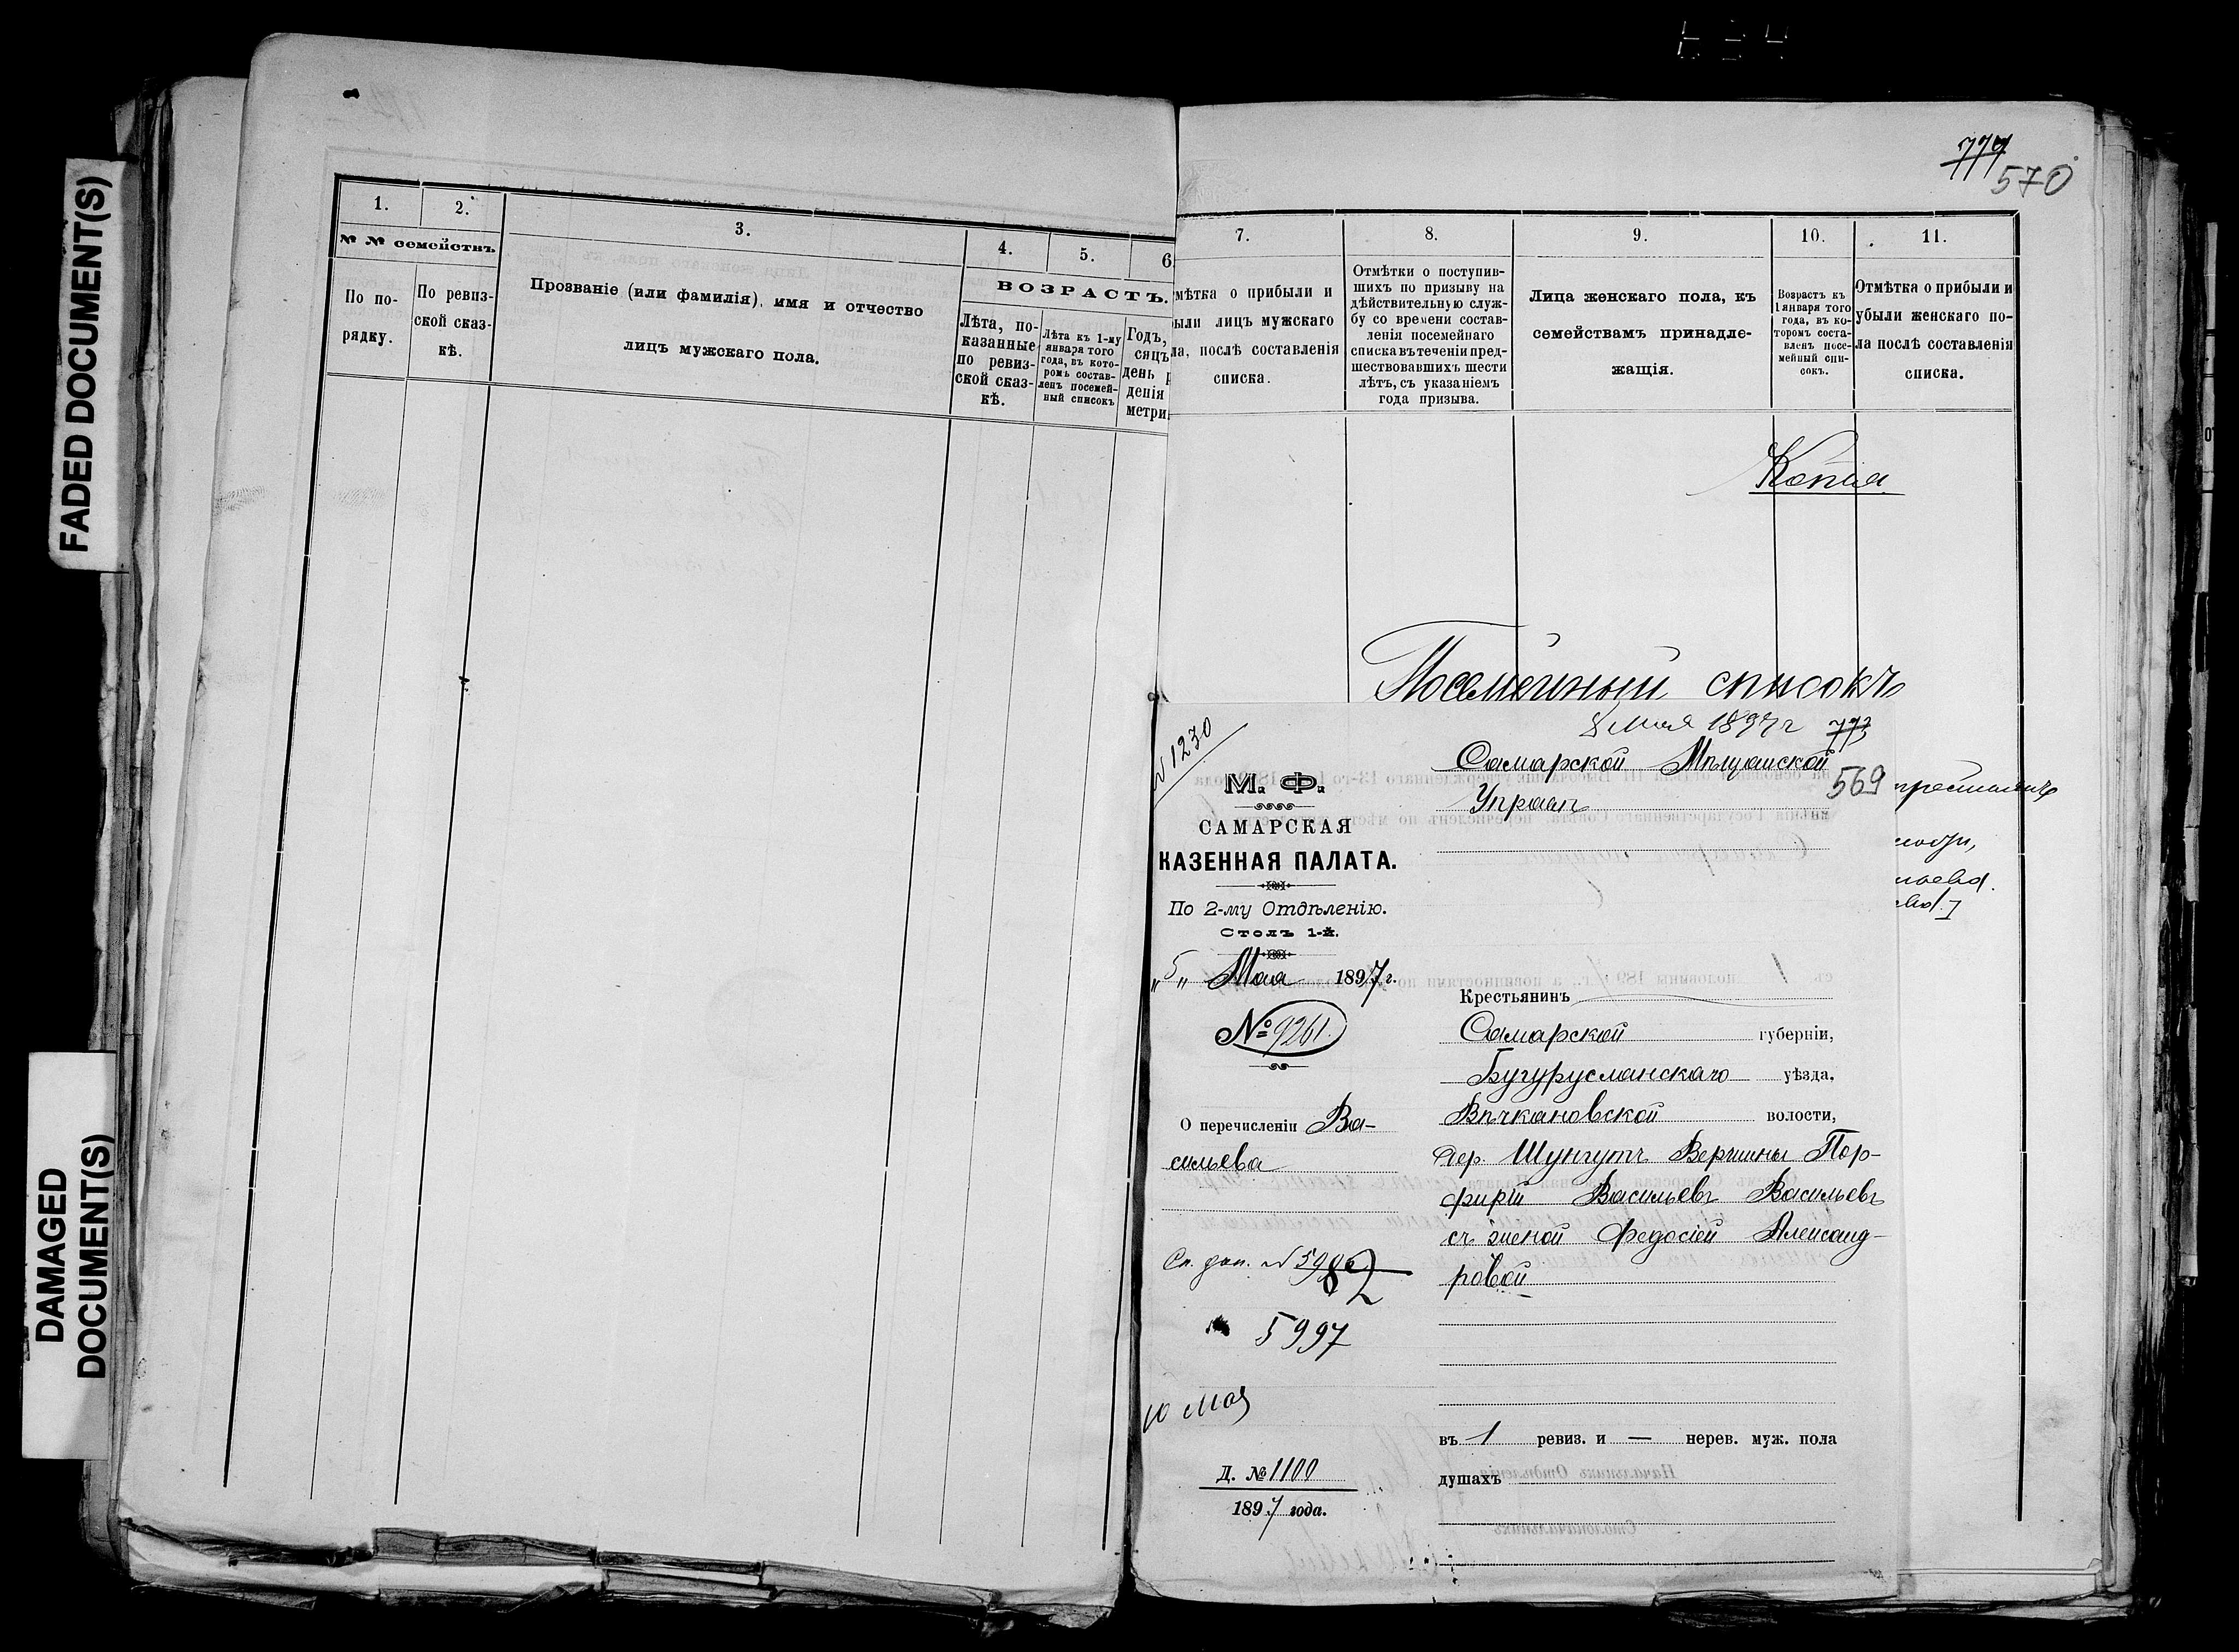 FADED DOCUMENT(S)
DAMAGED
DOCUMENT(S)
1.
2.
3.
4.
5.
6.
№ № семействъ
По по-
рядку.
По ревиз-
ской сказ-
кѣ.
Прозваніе (или фамилія), имя и отчество
лицъ мужскаго пола.
ВОЗРАСТЪ.
Лѣта, по-
казанные
по ревиз-
ской сказ-
кѣ.
Лѣта къ 1-му
января того
года, въ кото-
ромъ состав-
ленъ посемей-
ный списокъ
Годъ,
сяцъ
день р
денія
метри
777
570
7.
8.
9.
10.
11.
мѣтка о прибыли и
ыли лицъ мужскаго
ла, послѣ составленія
списка.
Отмѣтки о поступив-
шихъ по призыву на
дѣйствительную служ-
бу со времени состав-
ленія посемейнаго
списка въ теченіи пред-
шествовавшихъ шести
лѣтъ, съ указаніемъ
года призыва.
Лица женскаго пола, къ
семействамъ принадле-
жащія.
Возрастъ къ
1 января того
года, въ ко-
торомъ соста-
вленъ посе-
мейный спи-
сокъ.
Отмѣтка о прибыли и
убыли женскаго по-
ла послѣ составленія
списка.
Копія
Посемейный списокъ
8 Мая 1897 г
773
569
№ 1230
М. Ф.
САМАРСКАЯ
КАЗЕННАЯ ПАЛАТА.
По 2-му Отдѣленію.
Столъ 1-й.
„5„ Мая 1897 г.
№ 9261.
О перечисленіи Ва-
сильева
5997
10 мая
Д. № 1100
1897 года.
Самарской Мѣщанской
Управѣ
Крестьянинъ
Самарской губерніи,
Бугурусланскаго уѣзда,
Вѣчкановской волости,
дер. Шунгутъ Вершины Пор-
фирій Васильевъ Васильевъ
съ женой Федосіей Александ-
ровой
въ 1 ревиз. и — нерев. муж. пола
душахъ